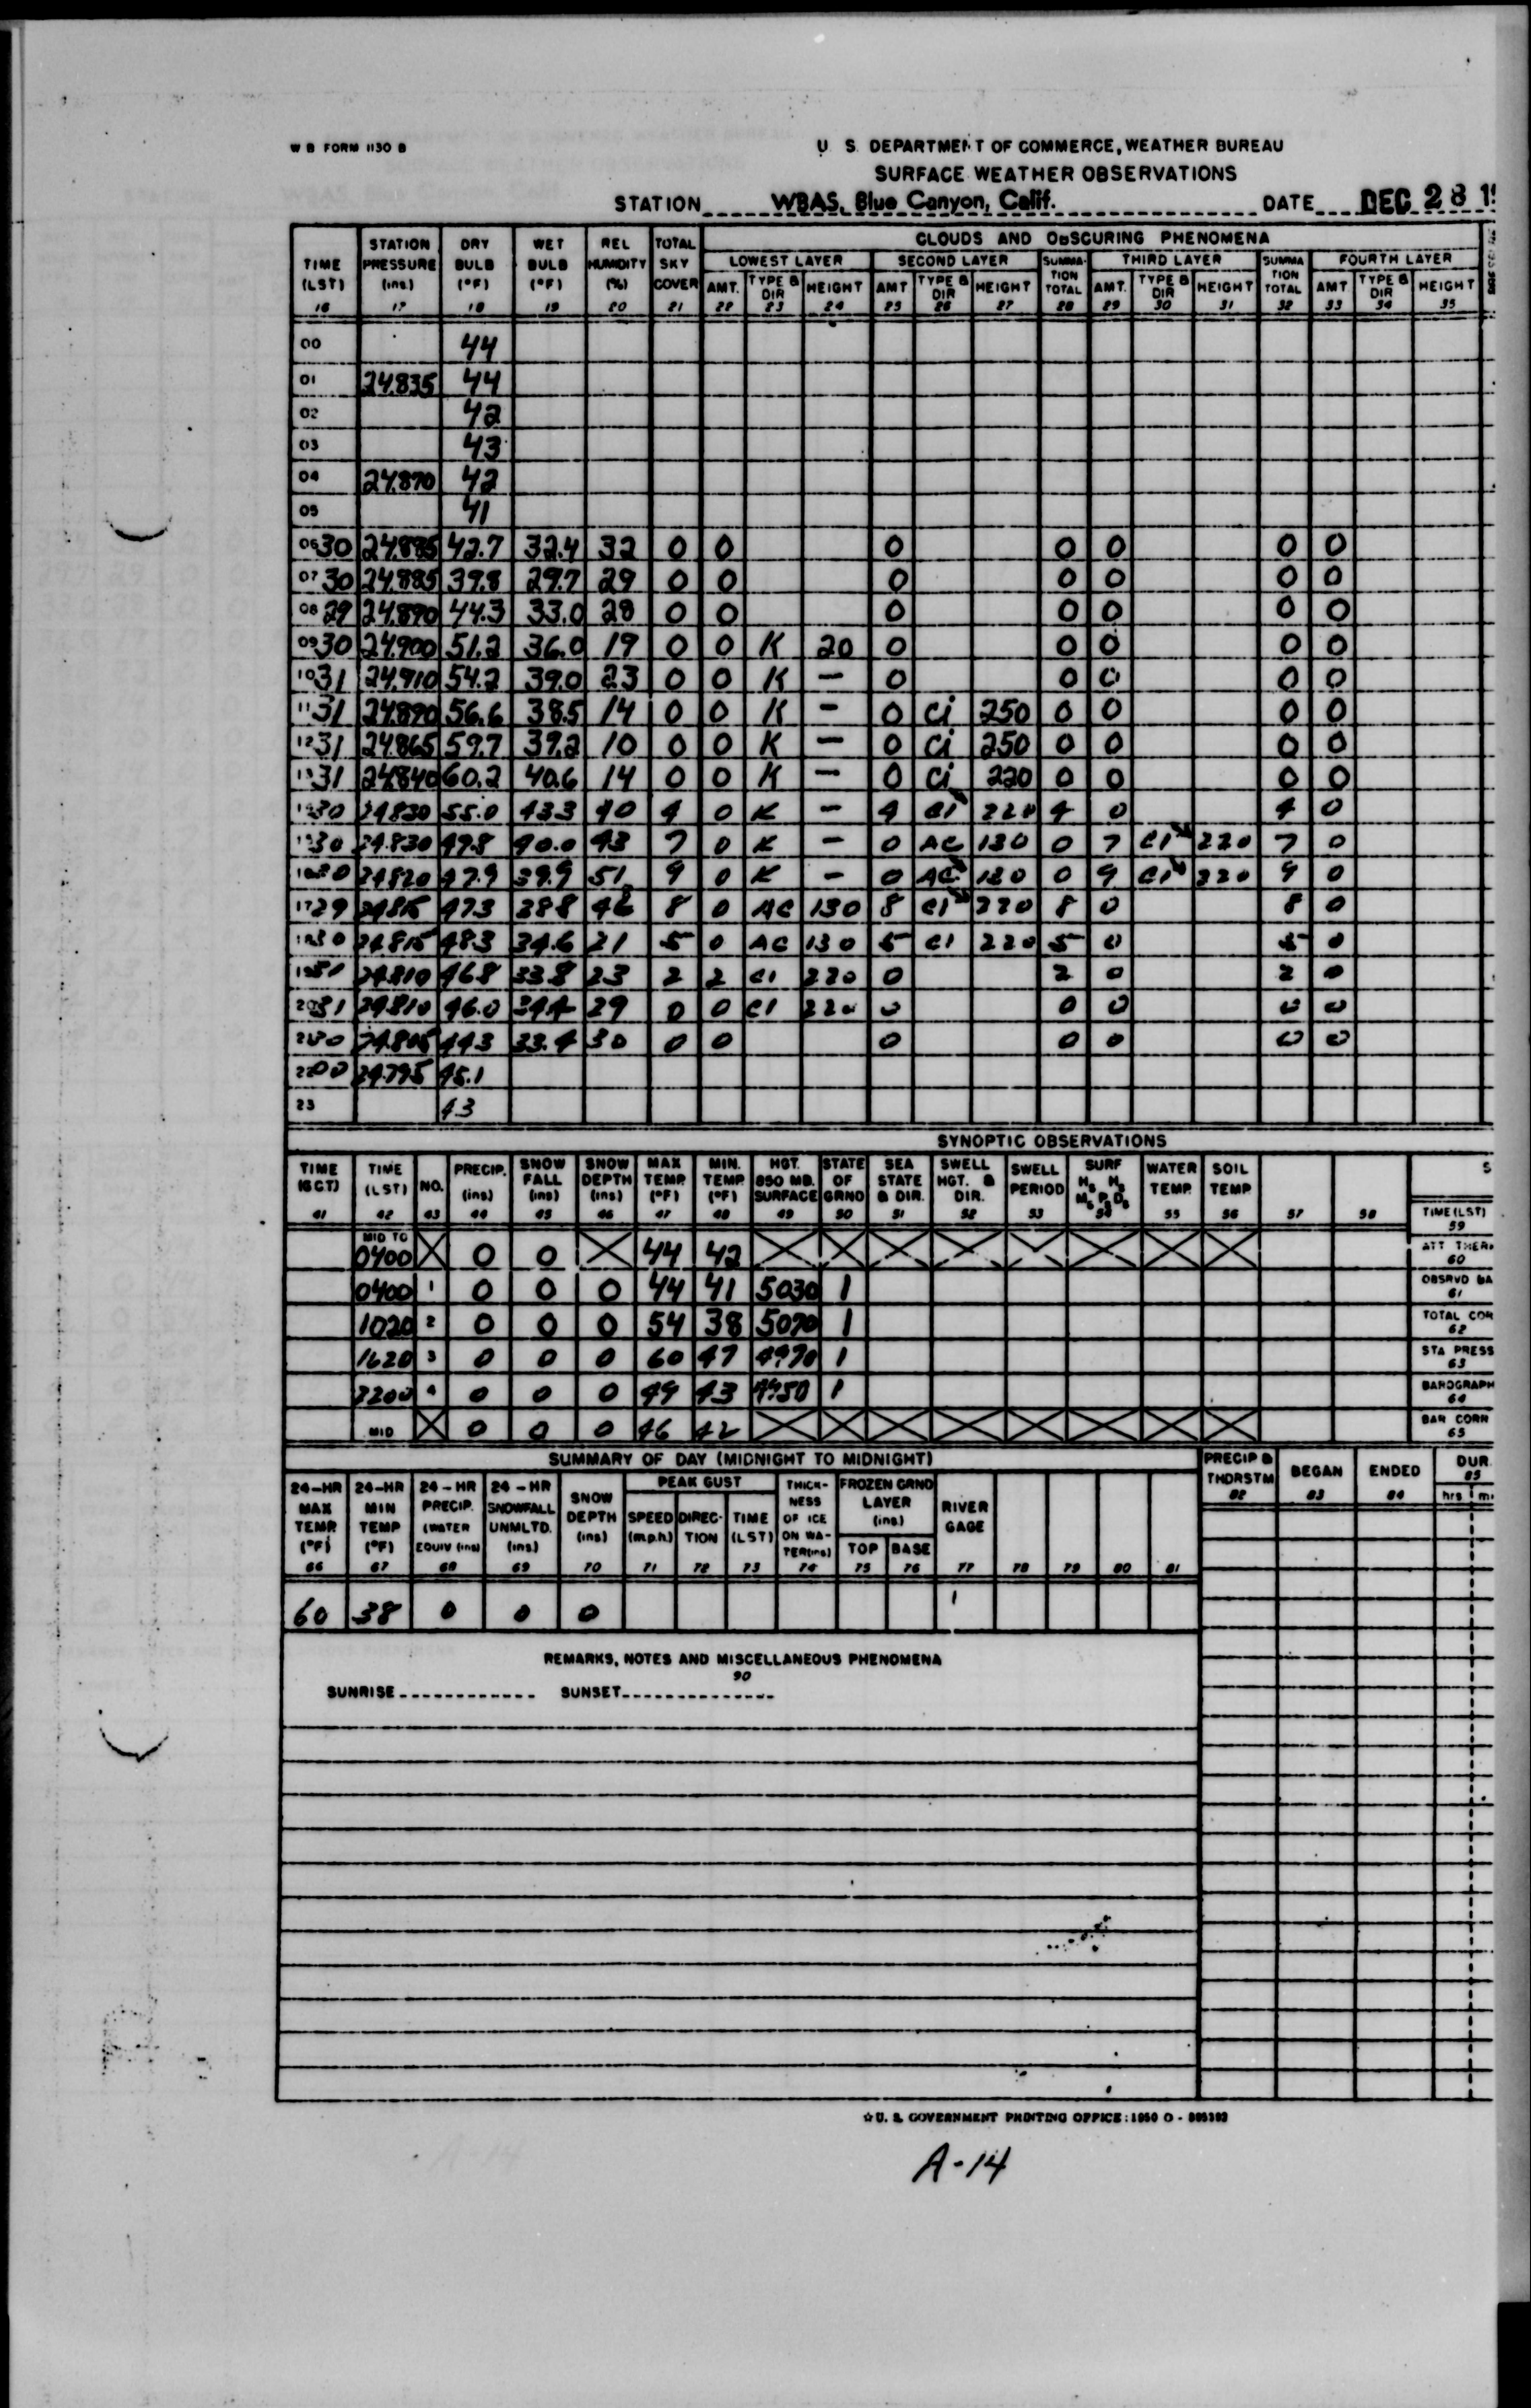 W B FORM 1130 B
U. S. DEPARTMENT OF COMMERCE, WEATHER BUREAU
SURFACE WEATHER OBSERVATIONS
STATION WBAS, Blue Canyon, Calif. DATE DEC 28 19
CLOUDS AND OBSCURING PHENOMENA
LOWEST LAYER SECOND LAYER THIRD LAYER FOURTH LAYER
TIME (LST) 16 STATION PRESSURE (ins) 17 DRY BULB (°F) 18 WET BULB (°F) 19 REL HUMIDITY (%) 20 TOTAL SKY COVER 21 AMT. 22 TYPE & DIR 23 HEIGHT 24 AMT 25 TYPE & DIR 26 HEIGHT 27 SUMMATION TOTAL 28 AMT. 29 TYPE & DIR 30 HEIGHT 31 SUMMATION TOTAL 32 AMT 33 TYPE & DIR 34 HEIGHT 35
00 44
01 24.835 44
02 42
03 43
04 24.870 42
05 41
0630 24.885 42.7 32.4 32 0 0 0 0 0 0 0
0730 24.885 39.8 29.7 29 0 0 0 0 0 0 0
0829 24.890 44.3 33.0 28 0 0 0 0 0 0 0
0930 24.900 51.2 36.0 19 0 0 K 20 0 0 0 0 0
1031 24.910 54.2 39.0 23 0 0 K - 0 0 0 0 0
1131 24.890 56.6 38.5 14 0 0 K - 0 Ci 250 0 0 0 0
1231 24.865 59.7 39.2 10 0 0 K - 0 Ci 250 0 0 0 0
1331 24.840 60.2 40.6 14 0 0 K - 0 Ci 220 0 0 0 0
1430 24.830 55.0 43.3 40 4 0 K - 4 CI 220 4 0 4 0
1530 24.830 49.8 40.0 43 7 0 K - 0 AC 130 0 7 CI 220 7 0
1620 24.820 47.9 39.9 51 9 0 K - 0 AC 130 0 9 CI 220 9 0
1729 24.815 47.3 38.8 46 8 0 AC 130 8 CI 220 8 0 8 0
1830 24.815 48.3 34.6 21 5 0 AC 130 5 CI 220 5 0 5 0
1931 24.810 46.8 33.8 23 2 2 CI 220 0 2 0 2 0
2031 24.810 46.0 34.4 29 0 0 CI 220 0 0 0 0 0
2130 24.805 44.3 33.4 30 0 0 0 0 0 0 0
2200 24.795 45.1
23 43
SYNOPTIC OBSERVATIONS
TIME (GCT) 41 TIME (LST) 42 NO. 43 PRECIP. (ins) 44 SNOW FALL (ins) 45 SNOW DEPTH (ins) 46 MAX TEMP (°F) 47 MIN. TEMP (°F) 48 HGT. 850 MB. SURFACE 49 STATE OF GRND 50 SEA STATE & DIR. 51 SWELL HGT. & DIR. 52 SWELL PERIOD 53 SURF 54 WATER TEMP. 55 SOIL TEMP 56 57 58 TIME (LST) 59
MID TO 0400 0 0 44 42 ATT THER 60
0400 1 0 0 0 44 41 5030 1 OBSRVD BA 61
1020 2 0 0 0 54 38 5070 1 TOTAL COR 62
1620 3 0 0 0 60 47 4970 1 STA PRESS 63
2200 4 0 0 0 49 43 4950 1 BAROGRAPH 64
MID 0 0 0 46 42 BAR CORR 65
SUMMARY OF DAY (MIDNIGHT TO MIDNIGHT)
24-HR MAX TEMP. (°F) 66 24-HR MIN TEMP (°F) 67 24-HR PRECIP. (WATER EQUIV (ins) 68 24-HR SNOWFALL UNMLTD. (ins) 69 SNOW DEPTH (ins) 70 PEAK GUST SPEED (m.p.h.) 71 DIRECTION 72 TIME (LST) 73 THICKNESS OF ICE ON WATER (ins) 74 FROZEN GRND LAYER (ins) TOP 75 BASE 76 RIVER GAGE 77 78 79 80 81 PRECIP & THDRSTM 82 BEGAN 83 ENDED 84 DUR. 85 hrs
60 38 0 0 0
REMARKS, NOTES AND MISCELLANEOUS PHENOMENA
90
SUNRISE SUNSET
☆ U. S. GOVERNMENT PRINTING OFFICE: 1950 O -
A-14